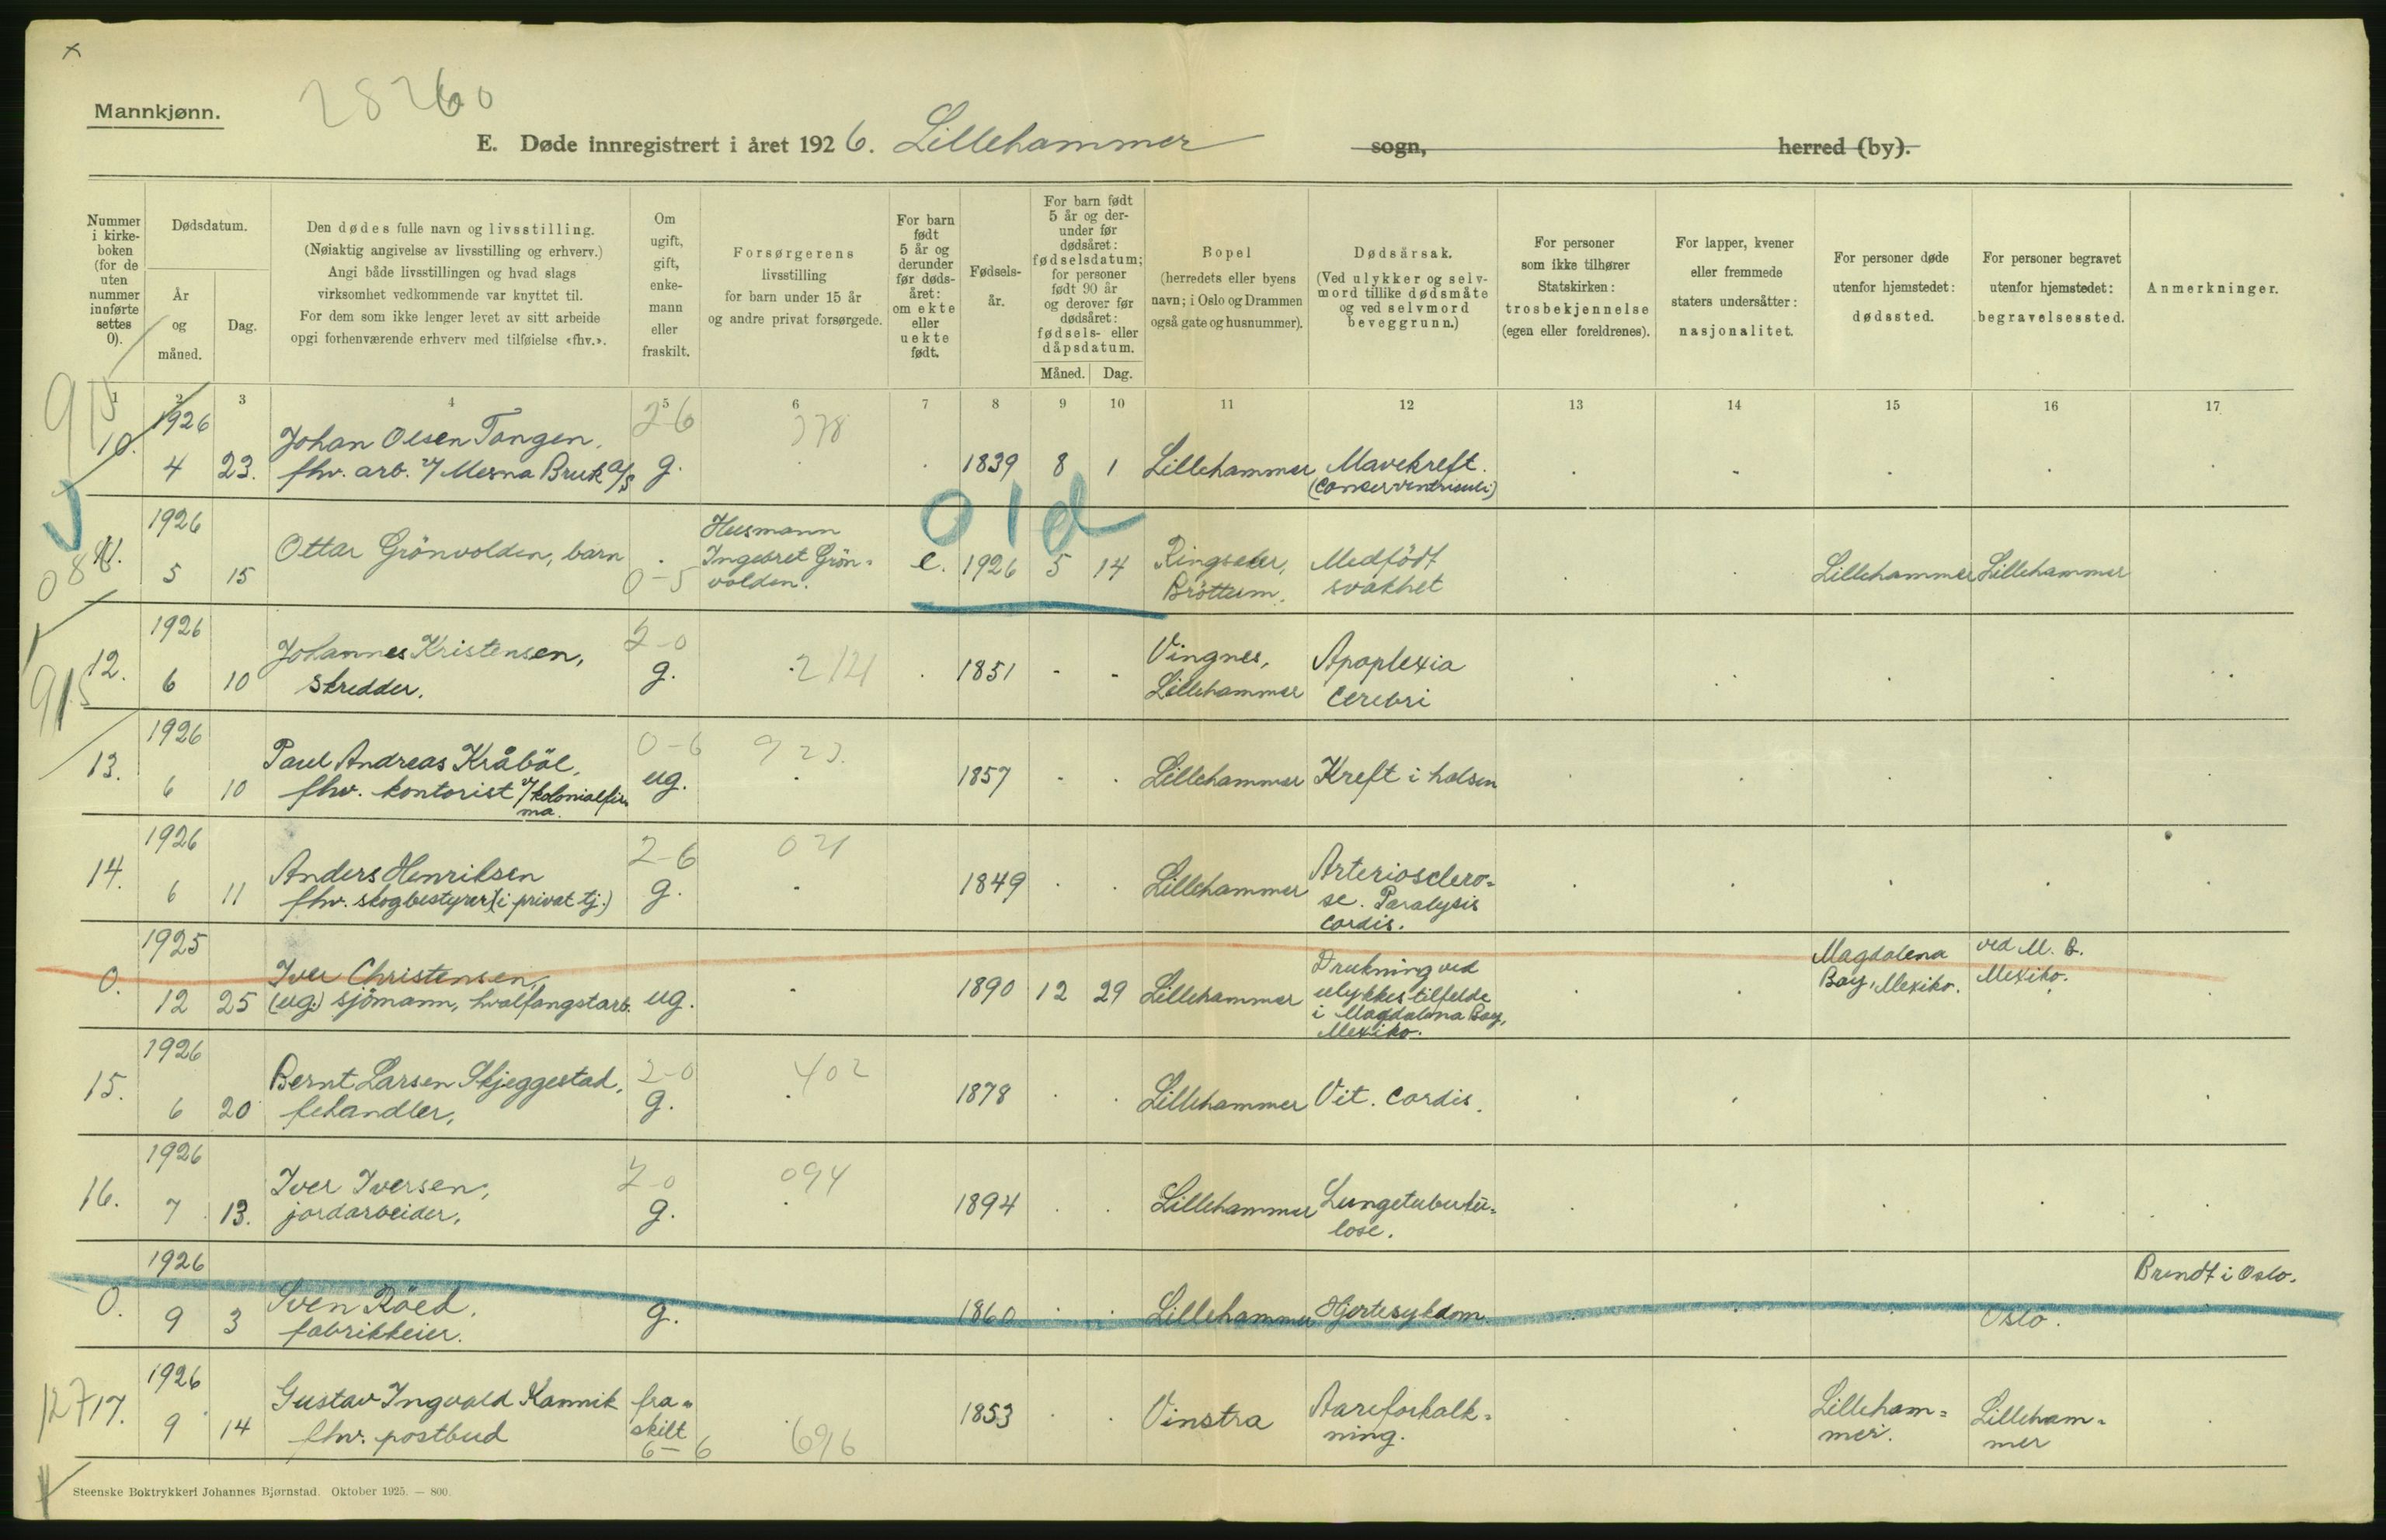 ×
28260
Mannkjønn.
E. Døde innregistrert i året 1926. Lillehammer sogn, herred (by).
Nummer i kirke-boken (for de uten nummer innførte settes 0).
Dødsdatum.
År og måned.
Dag.
Den dødes fulle navn og livsstilling.
(Nøiaktig angivelse av livsstilling og erhverv.)
Angi både livsstillingen og hvad slags
virksomhet vedkommende var knyttet til.
For dem som ikke lenger levet av sitt arbeide
opgi forhenværende erhverv med tilføielse «fhv.».
Om ugift, gift, enke-mann eller fraskilt.
Forsørgerens
livsstilling
for barn under 15 år
og andre privat forsørgede.
For barn født 5 år og derunder før døds-året: om ekte eller uekte født.
Fødsels-år.
For barn født 5 år og der-under før dødsåret: fødselsdatum; for personer født 90 år og derover før dødsåret: fødsels- eller dåpsdatum.
Måned. Dag.
Bopel
(herredets eller byens
navn; i Oslo og Drammen
også gate og husnummer).
Dødsårsak.
(Ved ulykker og selv-
mord tillike dødsmåte
og ved selvmord
beveggrunn.)
For personer
som ikke tilhører
Statskirken:
trosbekjennelse
(egen eller foreldrenes).
For lapper, kvener
eller fremmede
staters undersåtter:
nasjonalitet.
For personer døde
utenfor hjemstedet:
dødssted.
For personer begravet
utenfor hjemstedet:
begravelsessted.
Anmerkninger.
1 2 3 4 5 6 7 8 9 10 11 12 13 14 15 16 17
915
1926 2-6 378
10. 4 23. Johan Olsen Tangen,
fhv. arb. v/ Mesna Bruk A/S g. 1839 8 1 Lillehammer Mavekreft.
(Cancer ventriculi)
old
088
1926
11. 5 15 Ottar Grönvolden, barn 0-5
Husmann
Ingebret Grön-
volden.
e. 1926 5 14 Ringsaker,
Bröttum.
Medfödt
svakhet
Lillehammer Lillehammer
915
1926 2-0 2121
12. 6 10 Johannes Kristensen,
skredder. g. 1851 - - Vingnes,
Lillehammer
Apoplexia
Cerebri
1926 0-6 923.
13. 6 10 Paul Andreas Kråböl,
fhv. kontorist v/kolonialfir-
ma.
ug. 1857 Lillehammer Kreft i halsen
1926 2-6 021
14. 6 11 Anders Henriksen
fhv. skogbestyrer (i privat tj.) g. 1849 Lillehammer
Arteriosclero-
se. Paralysis
cordis.
1925
0. 12 25 Iver Christensen,
(ug.) sjömann, hvalfangstarb. ug. 1890 12 29 Lillehammer
Drukning ved
ulykkestilfelde
i Magdalena Bay,
Mexiko.
Magdalena
Bay, Mexiko.
ved M. B.
Mexiko.
1926 2-0 402
15. 6 20 Bernt Larsen Skjeggestad,
fehandler, g. 1878 Lillehammer Vit. cordis.
1926 2-0 094
16. 7 13. Iver Iversen,
jordarbeider, g. 1894 Lillehammer Lungetuberku-
lose.
1926 Brendt i Oslo.
0. 9 3 Sven Röed,
fabrikkeier. g. 1860 Lillehammer Hjertesykdom Oslo.
127
1926
17. 9 14 Gustav Ingvald Kannik
fhv. postbud
fra-
skilt
6-6 696
1853 Vinstra Aareforkalk-
ning.
Lilleham-
mer.
Lilleham-
mer
Steenske Boktrykkeri Johannes Bjørnstad. Oktober 1925. — 800.